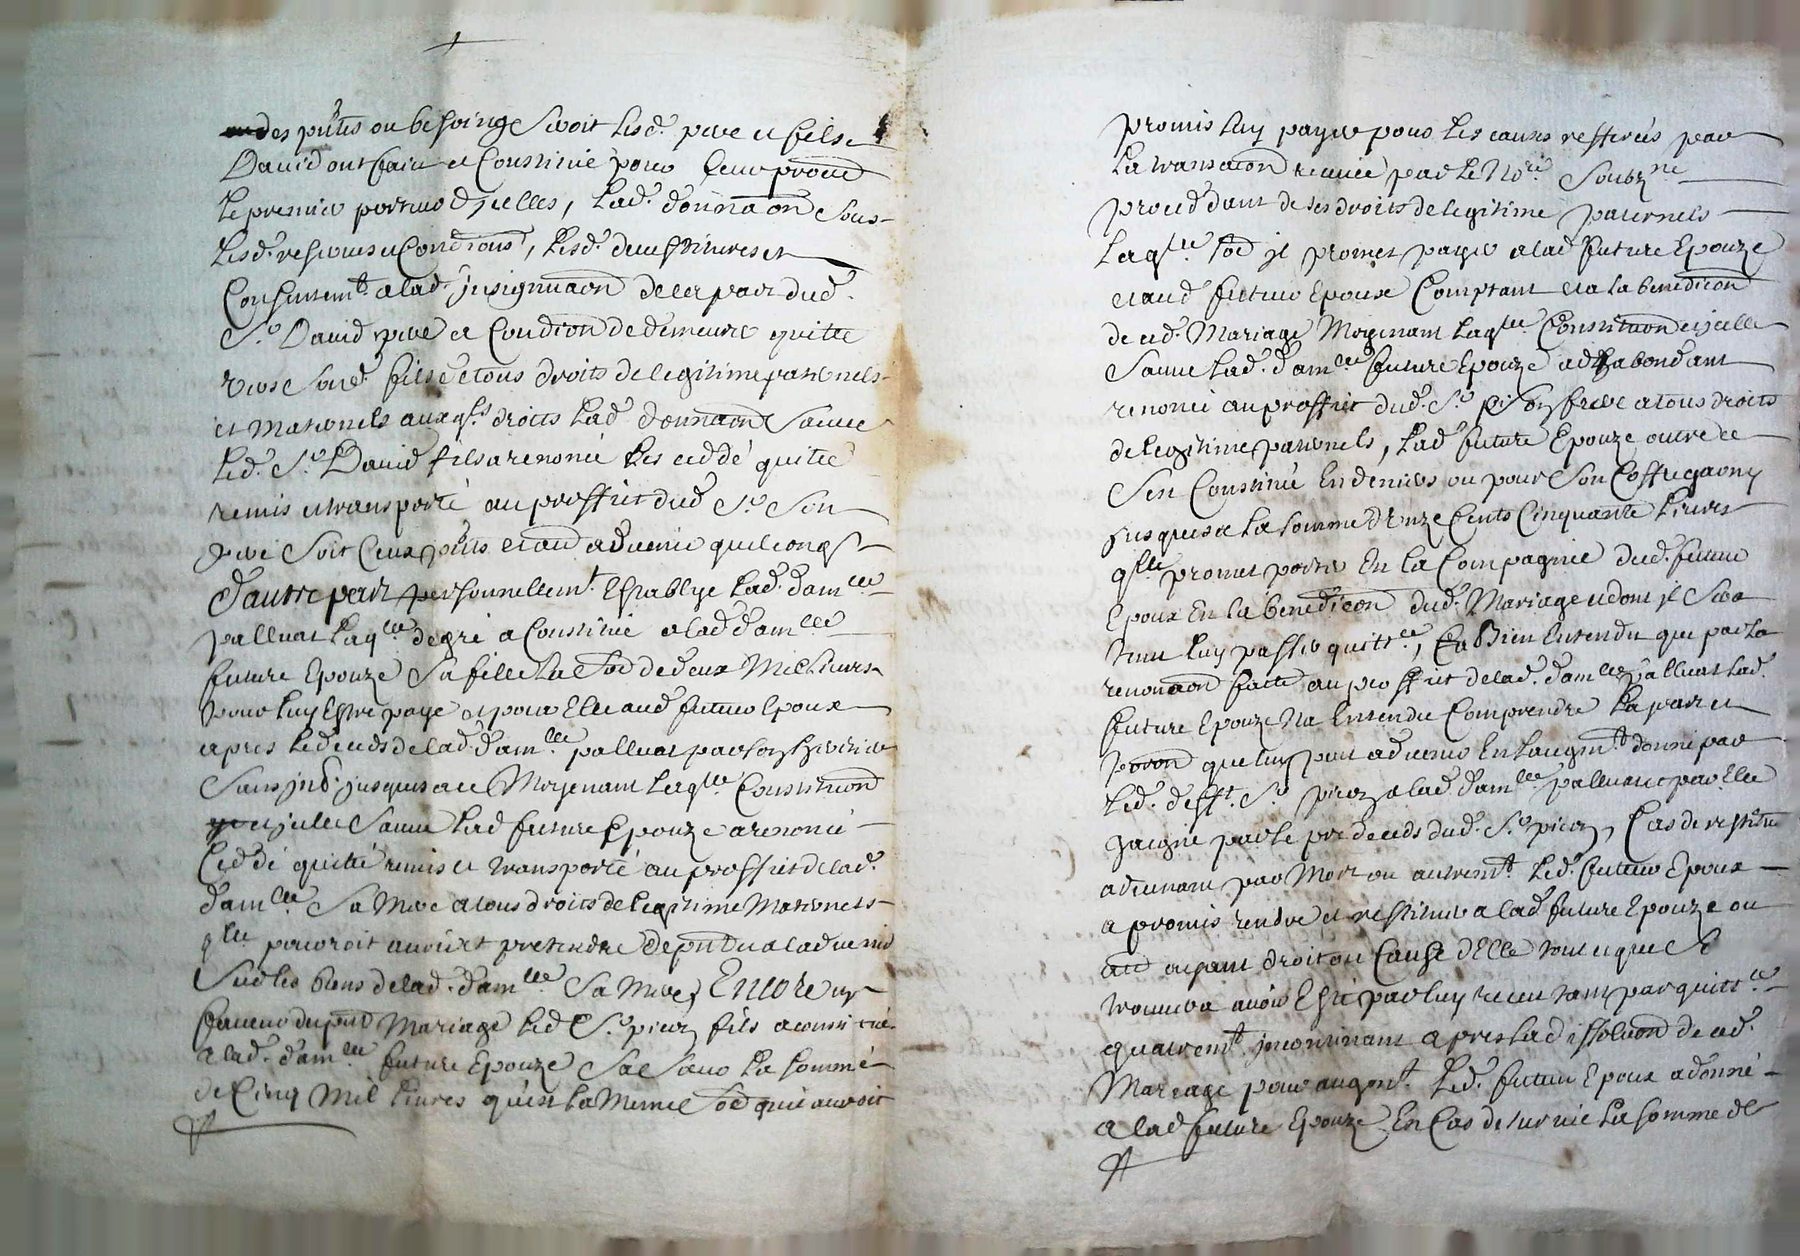 des pñtes ou besoing seroit lesd. pere et fils
David ont fait et Constitué pour leur procur
le premier porteur d'jcelles, lad. donnaon sous
lesd. reserves et Condions, lesd.
Consentemt. a lad. jnsignuaon de les part dud.
Sr. David pere et Condion de demeurer quitte
vers sond. fils de tous droits de legitime paternels
et maternels auxqls. droits lad. donnaon sauve
led. Sr. David fils a renoncé les ceddé quitté
remis et transporté au proffict dud. Sr. son
pere soit ceux pñts et au advenir quelconqs
d'autre part personnellemt. establye lad. damlle
palluat laqlle de gré a Constitué a lad. damlle
future Epouze sa fille la soe de deux mil livres
pour luy estre payé et pour elle aud. futur Epoux
apres le deceds de lad. damlle palluat par son heritier
sans jnt. jusques a ce Moyenant laqlle Constituon
et jcelle sauve lad. future Epouze a renoncé
ceddé quitté remis et transporté au proffict de lad.
damlle sa Mere a tous droits de legitime Maternels
qlle pourroit avoir et pretendre de pñt ou a l'advenir
sur les biens de lad. damlle sa Mere, Encore en
faveur du pñt Mariage led. Sr. pierre fils a constitué
a lad. damlle future Epouze sa sœur la somme
de Cinq Mil livres qu'est la Meme soe qui auroit
promis luy payer pour les causes refferées par
la transaction receuë par le Nore. soubzne
procedant de ses droits de legitime paternels
laqlle soe jl promet payer a lad. future Epouze
et aud. futur Epoux Comptant et a la benediction
de ced. Mariage Moyenant laqlle Constituon et jcelle
sauve lad. damlle future Epouze ad habondant
renoncé au proffict dud. Sr. son frere a tous droits
de legitime paternels, lad. future Epouze outre ce
s'est Constitué En deniers ou pour son Coffre garny
jusques a la somme d'onze Cents Cinquante livres
qlle promet porter En la Compagnie dud. futur
Epoux En la benediction dud. Mariage et dont jl sera
tenu luy passer quittce, Et a Bien Entendu que par la
renonaon faite au proffict de lad. damlle palluat lad.
future Epouze N'a Entendu Comprendre la part et
poron que luy peut advenir En l'augmt. donné par
led. defft. Sr. pierre a lad. damlle palluat et par Elle
gaigné par le predeceds dud. Sr. pierre, Cas de restituon
advenant par Mort ou autremt. led. futur Epoux
a promis rendre et restituer a lad. future Epouze ou
au ayant droit ou Cause d'Elle tout ce que se
trouvera avoir Esté par luy receu tant par quittce
qu'autremt. jncontinant apres la dissoluon de ced.
Mariage pour augmt. led. futur Epoux a donné
a lad. future Epouze En Cas de survie la somme de